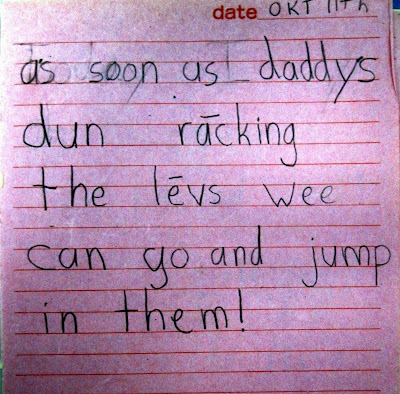 date OKT 11th
as soon as daddys
dun rācking
the lēvs wee
can go and jump
in them!